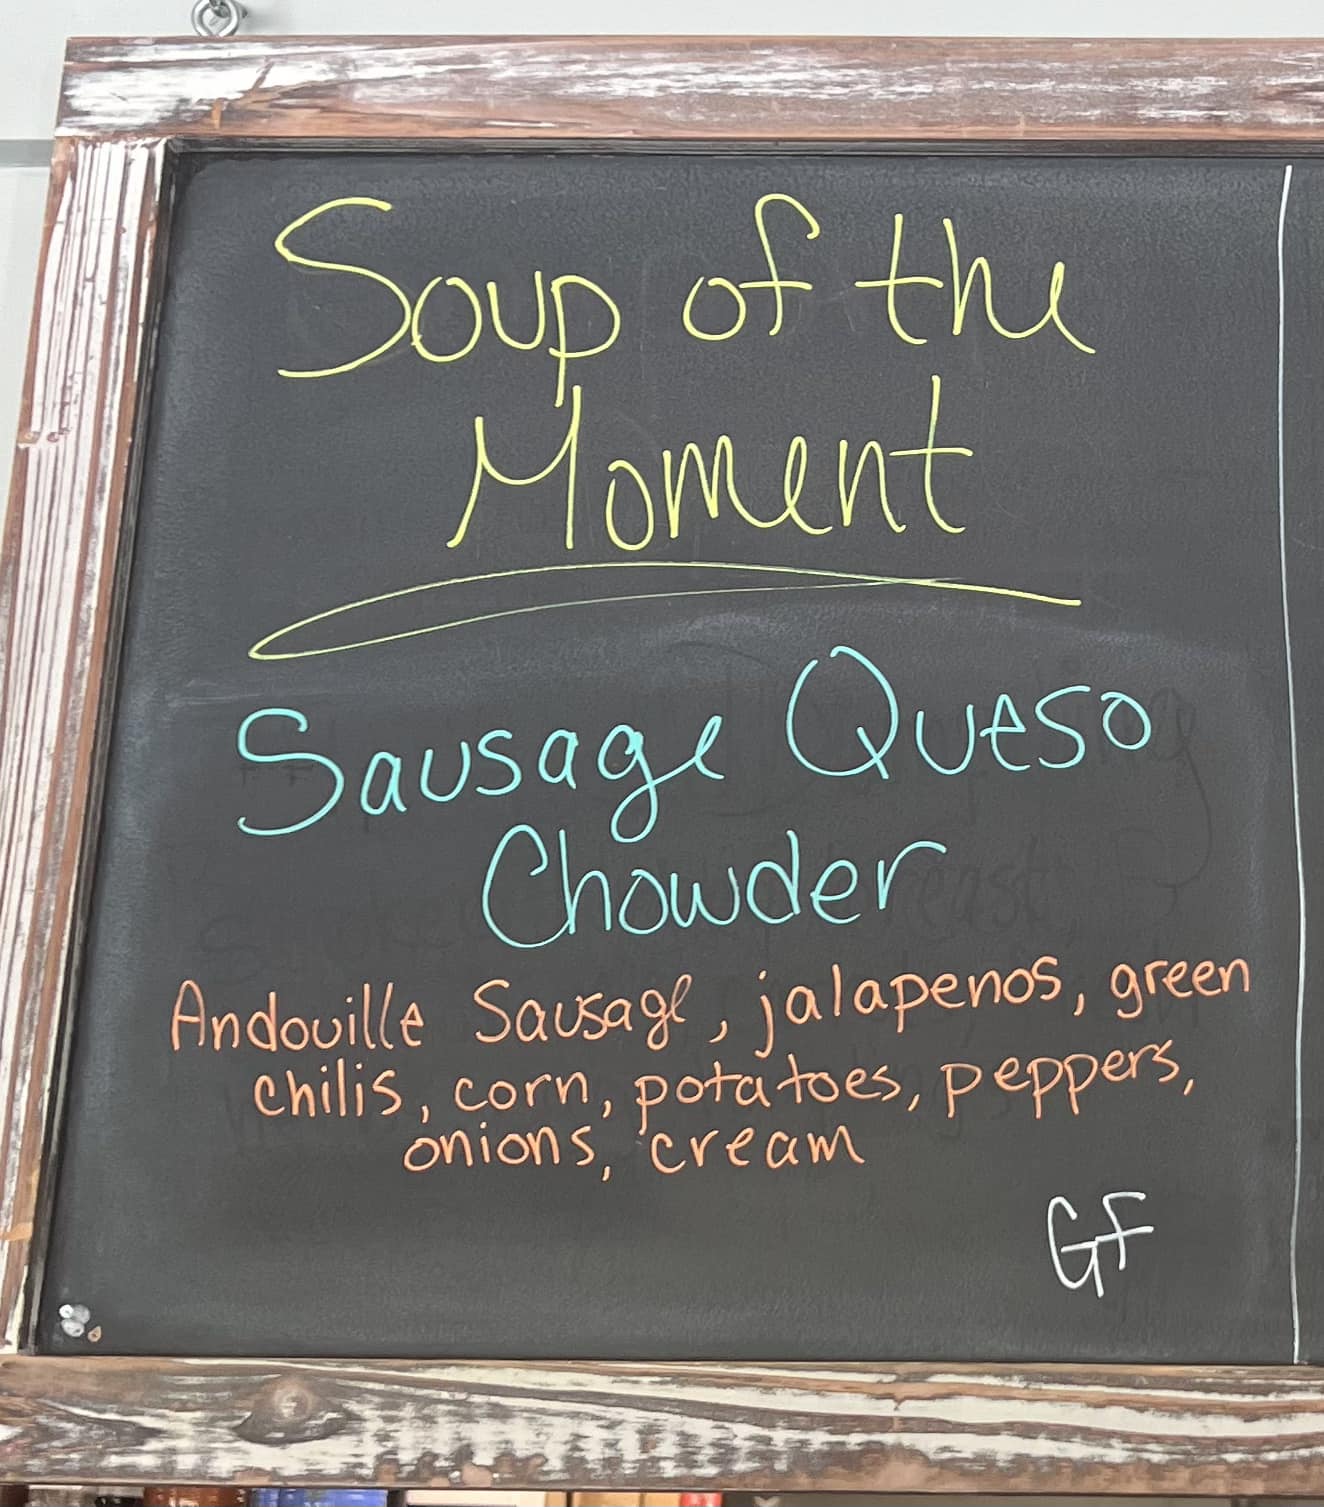 Soup of the
Moment
Sausage Queso
Chowder
Andouille Sausage, jalapenos, green
chilis, corn, potatoes, peppers,
onions, cream
GF